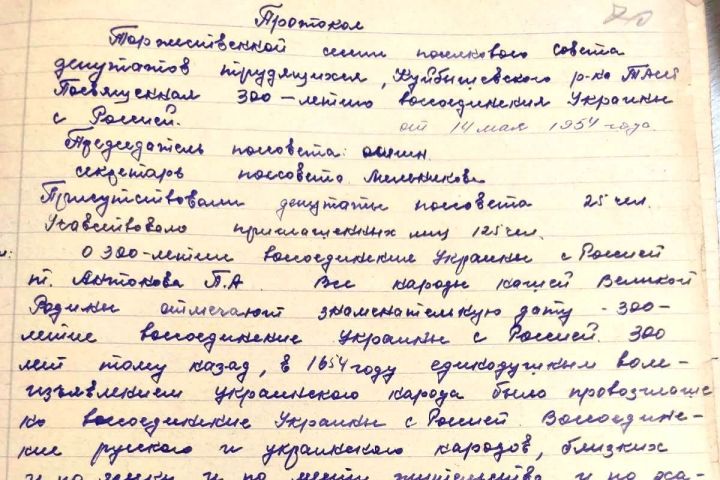 Протокол
Торжественной сессии поселкового совета
депутатов трудящихся, Куйбышевского р-на ТАССР
Посвященная 300-летию воссоединения Украины
с Россией. от 14 мая 1954 года.
Председатель поссовета:
секретарь поссовета Мельникова
Присутствовали депутаты поссовета 25 чел.
Учавствовало приглашенных лиц 125 чел.
О 300-летии воссоединения Украины с Россией
т. Антонова П.А. Все народы нашей Великой
Родины отмечают знаменательную дату - 300-
летие воссоединение Украины с Россией. 300
лет тому назад, в 1654 году единодушным воле-
изъявлением украинского народа было провозглаше
но воссоединение Украины с Россией. Воссоедине-
ние русского и украинского народов, близких
и по языку и по месту жительства и по ха-